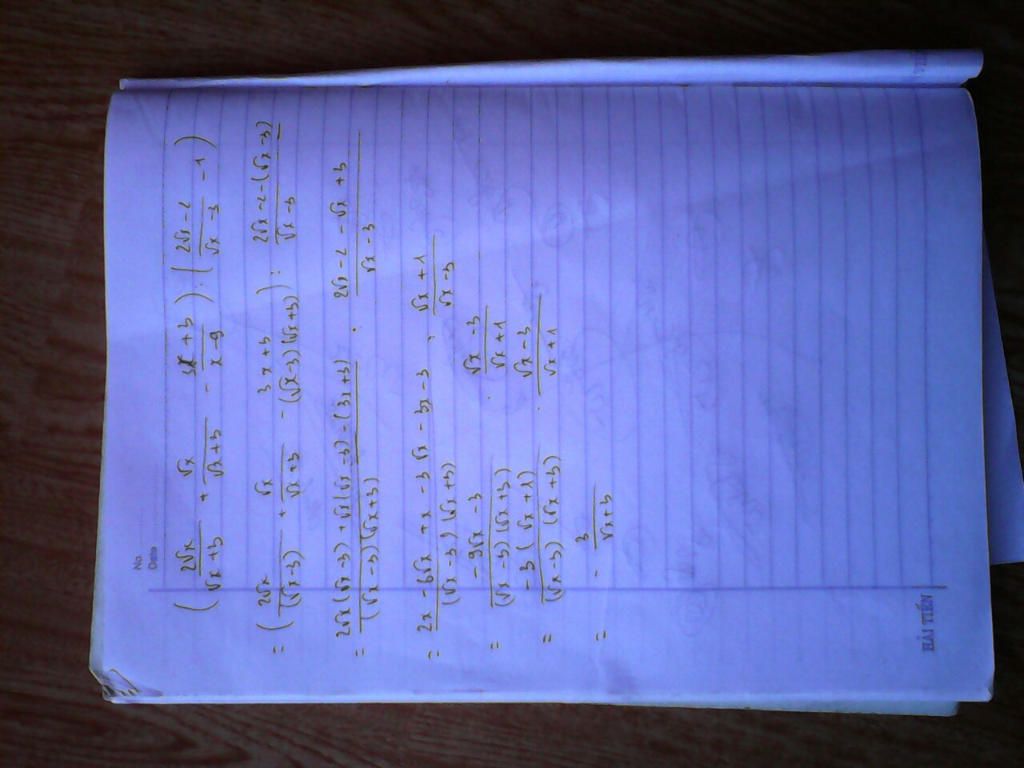 No.
Date
( 2√x / (√x + 3) + √x / (√x + 3) - (3x + 3) / (x - 9) ) : ( (2√x - 2) / (√x - 3) - 1 )
= ( 2√x / (√x - 3) + √x / (√x + 3) - (3x + 3) / (√x - 3)(√x + 3) ) : (2√x - 2 - (√x - 3)) / (√x - 3)
= (2√x(√x - 3) + √x(√x - 3) - (3x + 3)) / (√x - 3)(√x + 3) : (2√x - 2 - √x + 3) / (√x - 3)
= (2x - 6√x + x - 3√x - 3x - 3) / (√x - 3)(√x + 3) : (√x + 1) / (√x - 3)
= (-9√x - 3) / (√x - 3)(√x + 3) . (√x - 3) / (√x + 1)
= -3(√x + 1) / (√x - 3)(√x + 3) . (√x - 3) / (√x + 1)
= - 3 / (√x + 3)
HẢI TIẾN